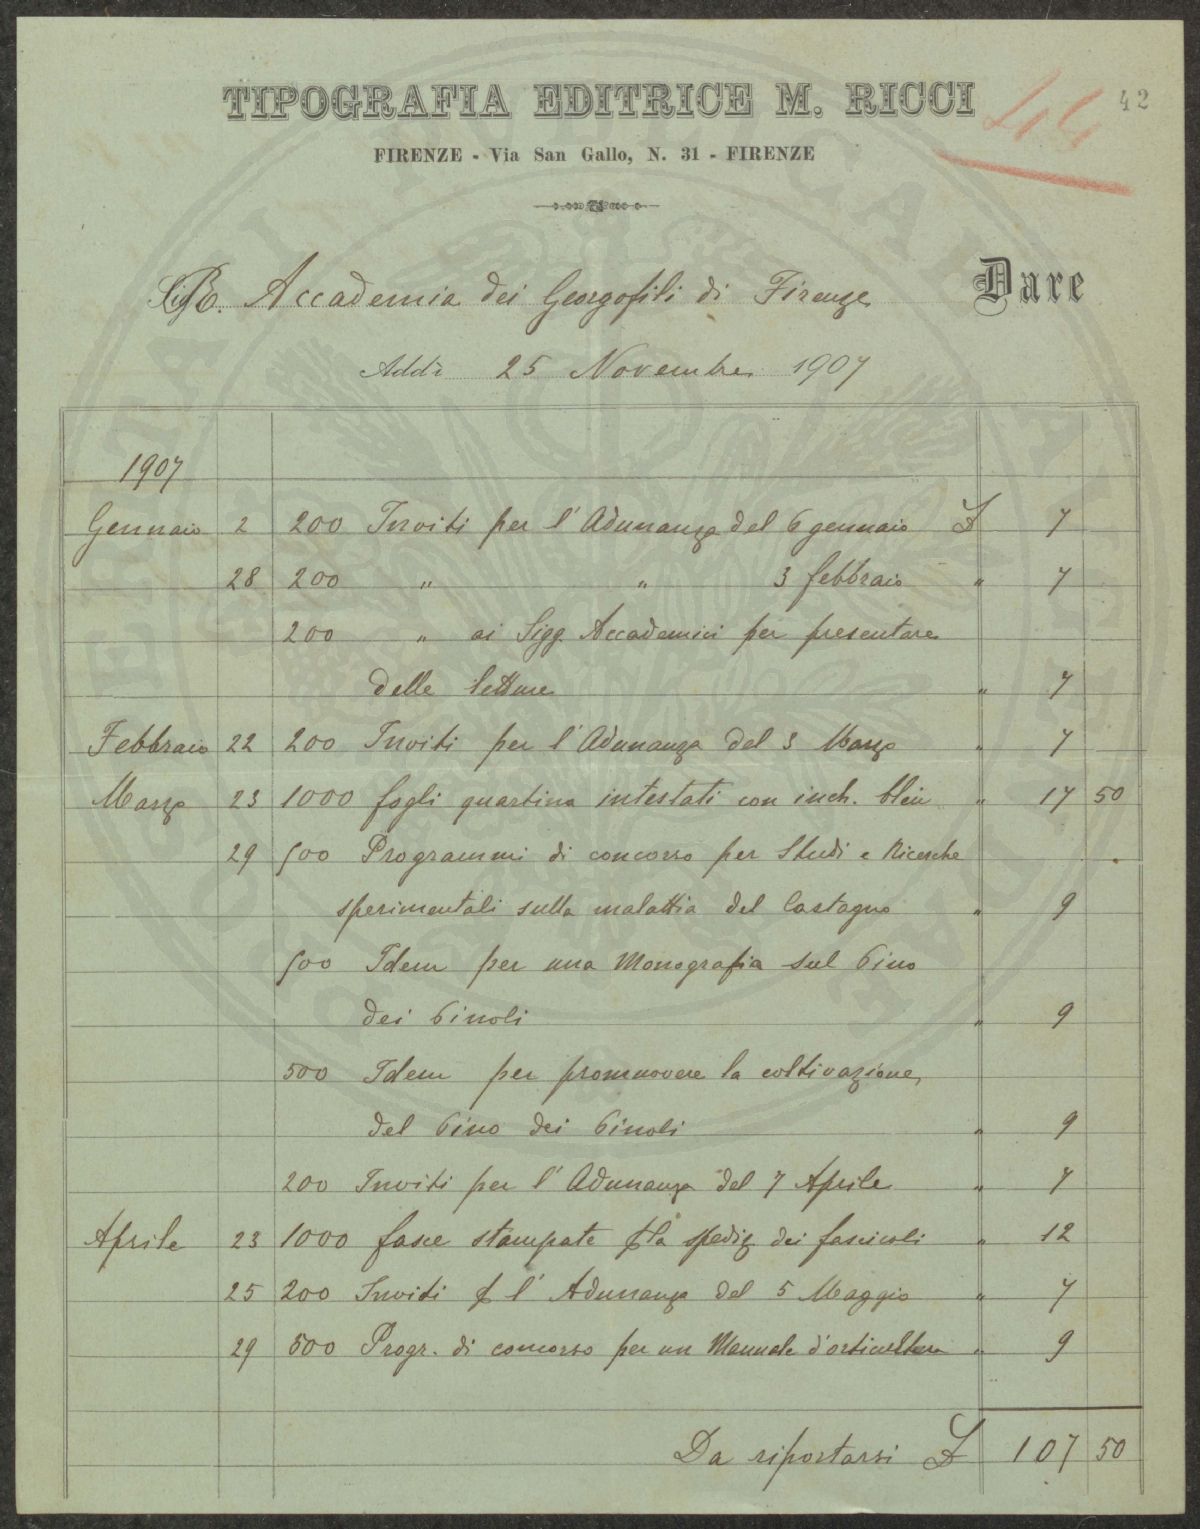 TIPOGRAFIA EDITRICE M. RICCI
42
FIRENZE - Via San Gallo, N. 31 - FIRENZE
R. Accademia dei Georgofili di Firenze Dare
Addì 25 Novembre 1907
1907
Gennaio 2 200 Inviti per l'Adunanza del 6 gennaio £ 7
28 200 " " 3 febbraio " 7
200 " ai Sigg. Accademici per presentare
delle letture " 7
Febbraio 22 200 Inviti per l'Adunanza del 3 Marzo " 7
Marzo 23 1000 fogli quartina intestati con inch. bleu " 17 50
29 500 Programmi di concorso per Studi e Ricerche
sperimentali sulla malattia del Castagno " 9
500 Idem per una Monografia sul Pino
dei Pinoli " 9
500 Idem per promuovere la coltivazione
del Pino dei Pinoli " 9
200 Inviti per l'Adunanza del 7 Aprile " 7
Aprile 23 1000 fasce stampate la spediz dei fascicoli " 12
25 200 Inviti l'Adunanza del 5 Maggio " 7
29 500 Progr. di concorso per un Manuale d'orticultura " 9
Da riportarsi £ 107 50